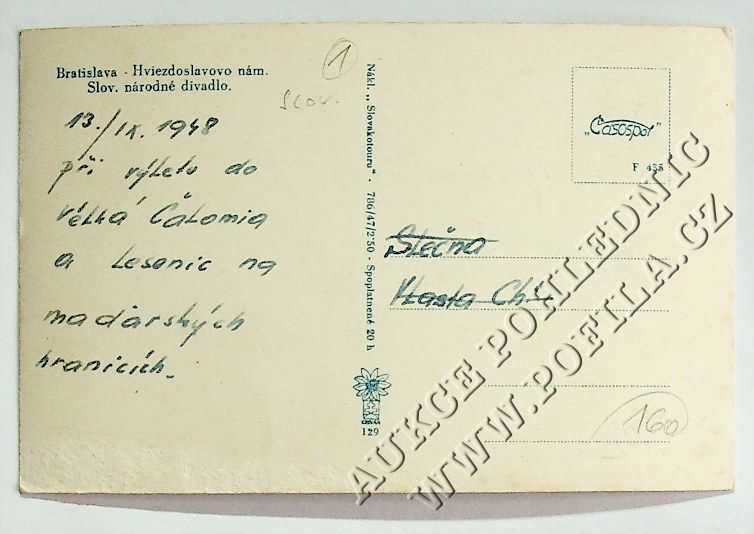 Bratislava - Hviezdoslavovo nám.
Slov. národné divadlo.
1
Slov.
13./IX. 1948
při výletu do
Velká Čalomia
a Lesenic na
maďarských
hranicích.
Nákl. „Slovakotouru" · 786/47/2'50 · Spoplatnené 20 h
129
„Časospor"
F 435
Slečna
Vlasta
160
AUKCE POHLEDNIC
WWW.POFILA.CZ